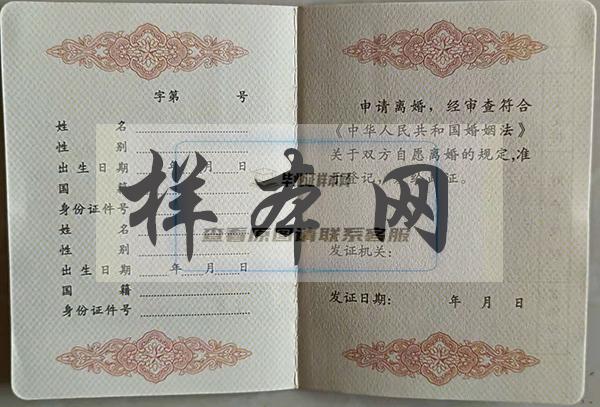 字第 号
姓 名
性 别
出生日期 年 月 日
国 籍
身份证件号
姓 名
性 别
出生日期 年 月 日
国 籍
身份证件号
申请离婚，经审查符合
《中华人民共和国婚姻法》
关于双方自愿离婚的规定,准
予登记，
证。
发证机关:
发证日期: 年 月 日
样本网
查看原图请联系客服